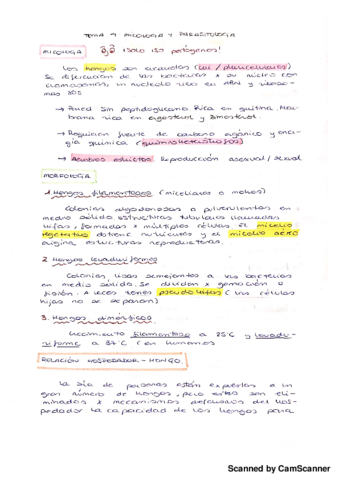 TEMA 9 MICOLOGIA Y PARASITOLOGIA
MICOLOGIA
¡Solo 150 patógenos!
Los hongos son eucariotas (uni / pluricelulares)
Se diferencian de las bacterias x su núcleo con
cromosomas, un nucleolo rico en ARN y riboso-
mas 80S
→ Pared sin peptidoglicano. Rica en quitina. Mem-
brana rica en ergosterol y zimosterol.
→ Requieren fuente de carbono orgánico y ener-
gía química (quimioheterótrofos)
→ Aerobios estrictos. Reproducción asexual / sexual
MORFOLOGIA
1. Hongos filamentosos (miceliares o mohos)
Colonias algodonosas o pulverulentas en
medio sólido. Estructuras tubulares llamadas
hifas, formadas x múltiples células. El micelio
vegetativo obtiene nutrientes y el micelio aéreo
origina estructuras reproductoras.
2. Hongos levaduriformes
Colonias lisas semejantes a las bacterias
en medio sólido. Se dividen x gemación o
fisión. A veces tienen pseudohifas (las células
hijas no se separan)
3. Hongos dimórficos
Crecimiento filamentoso a 25ºC y levadu-
riforme a 37ºC (en humanos)
RELACIÓN HOSPEDADOR - HONGO
de personas están expuestas a un
gran número de hongos, pero estos son eli-
minados x mecanismos defensivos del hos-
pedador. La capacidad de los hongos para
Scanned by CamScanner